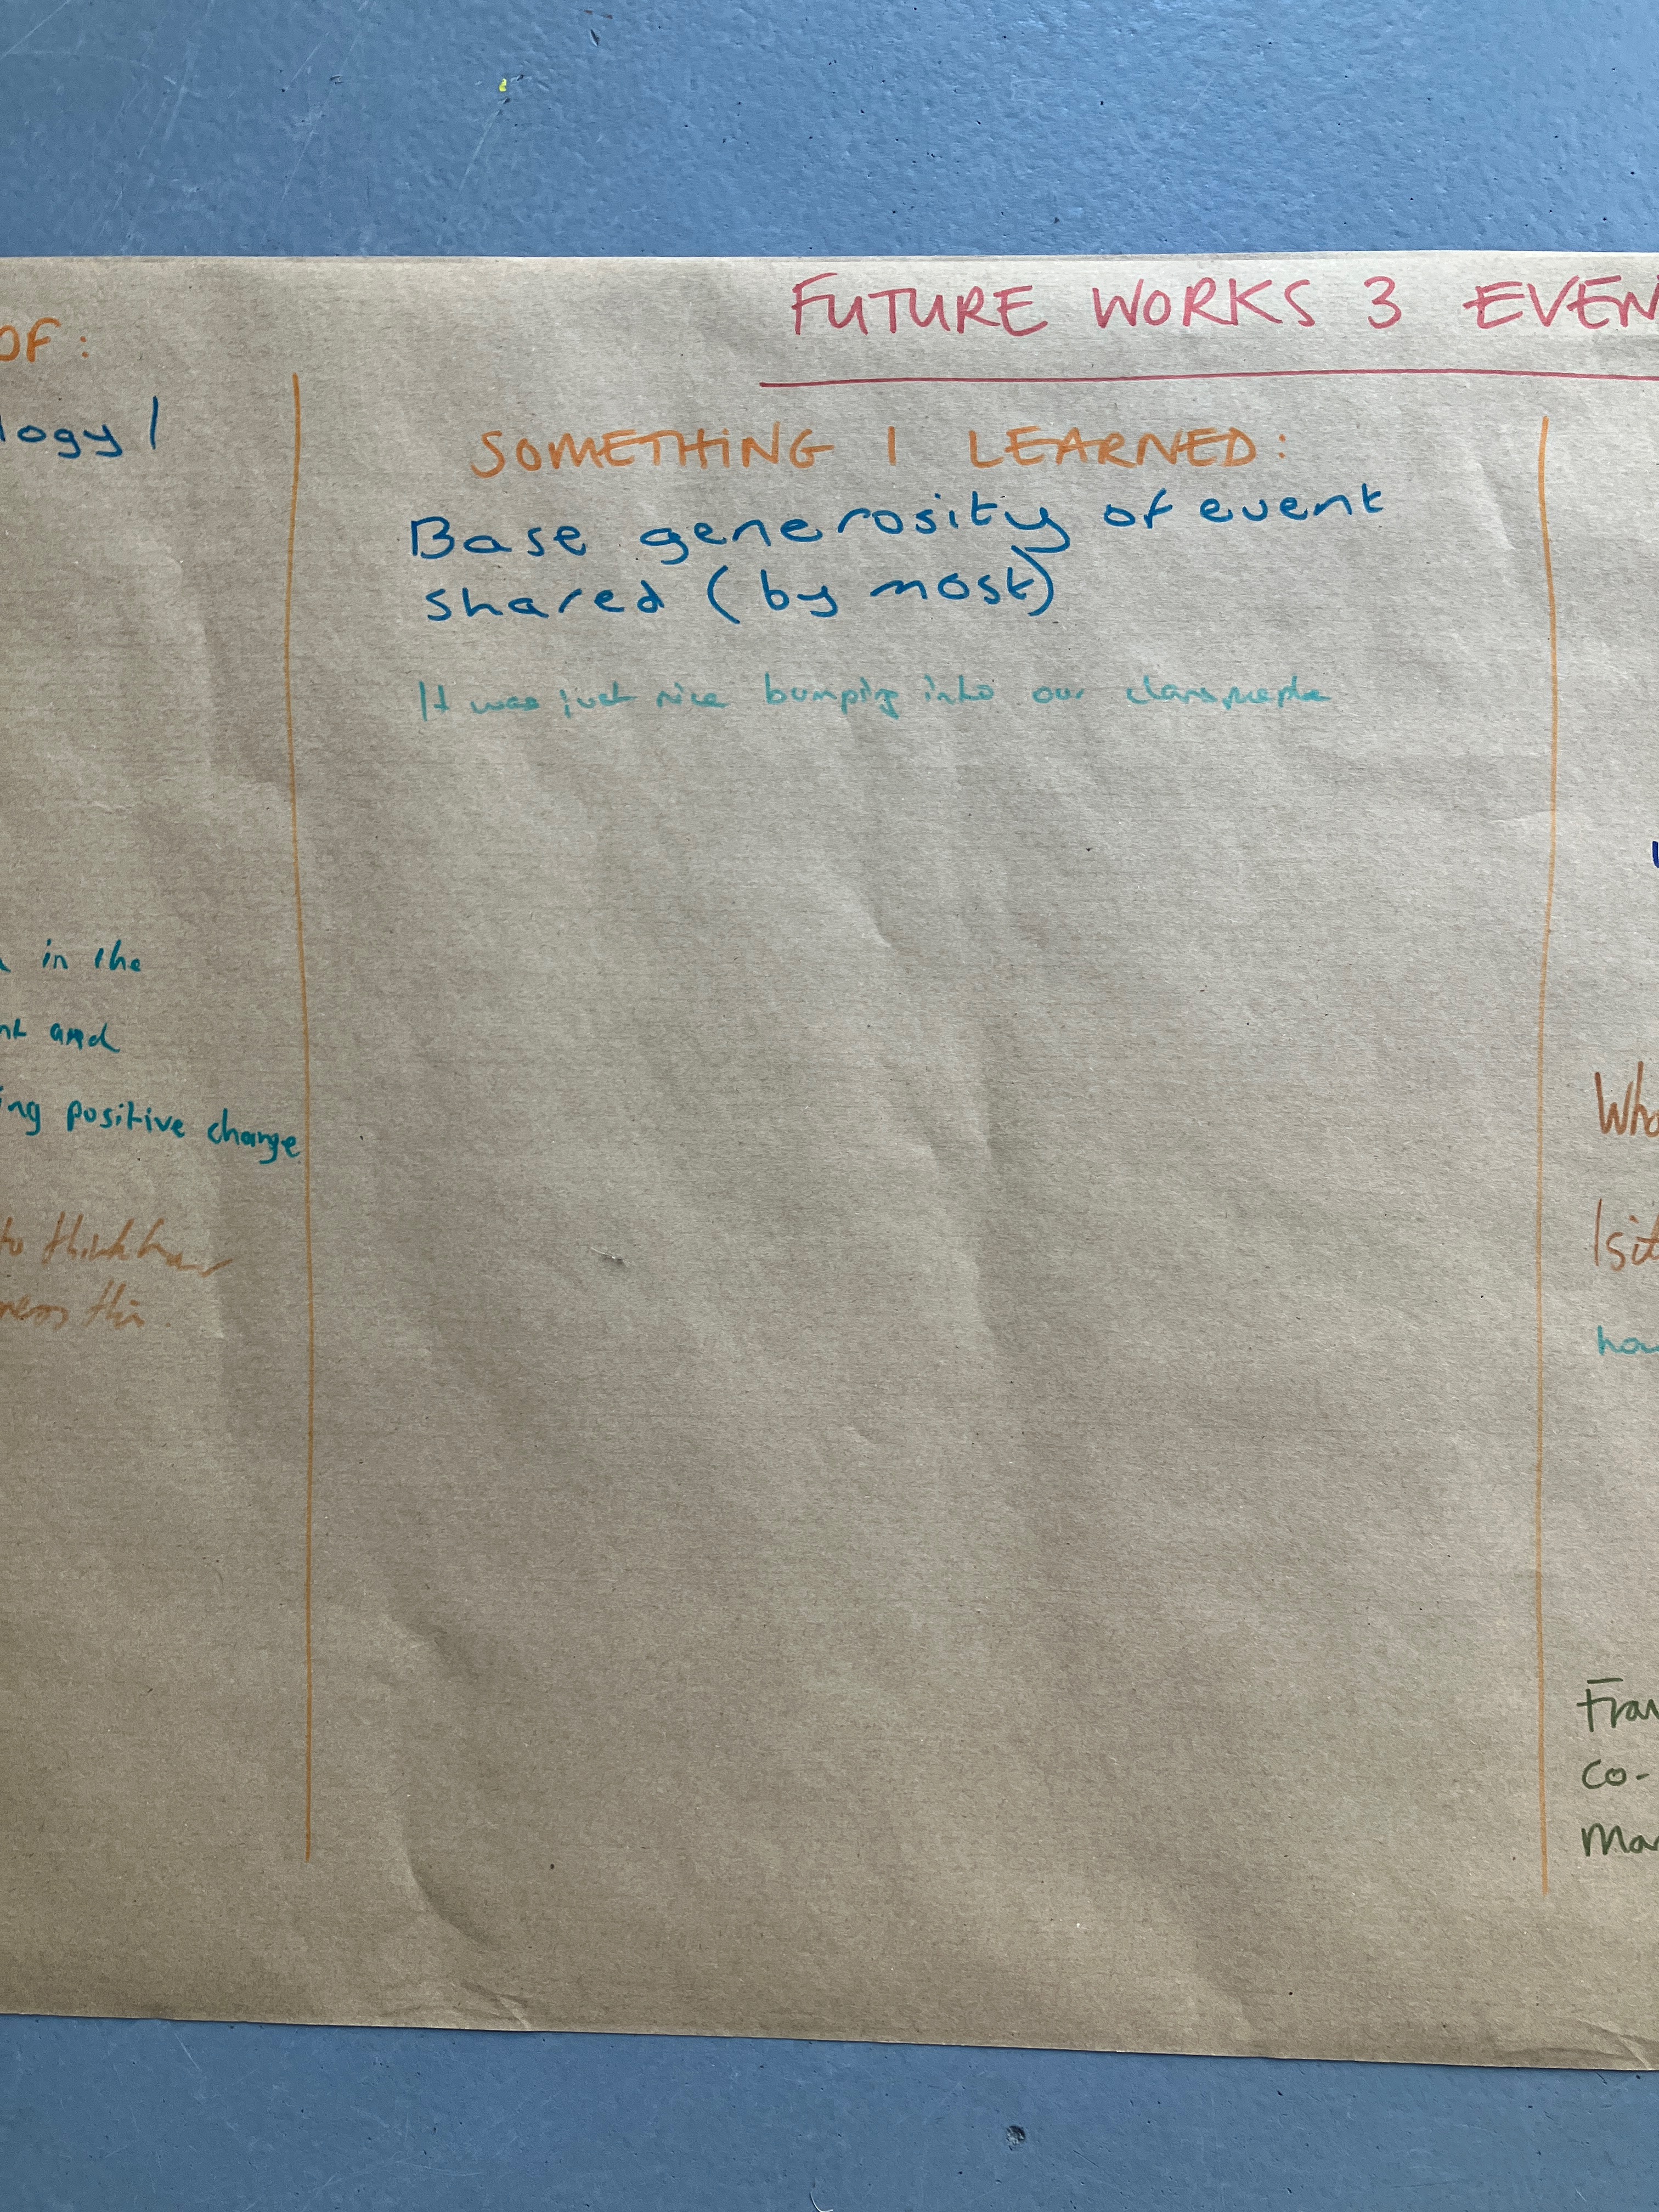 FUTURE WORKS 3 EVEN
OF:
logy /
in the
and
ing positive change
to think
this.
SOMETHING I LEARNED:
Base generosity of event
shared (by most)
It was just nice bumping into our
Who
Is it
how
Fran
co-
Mar